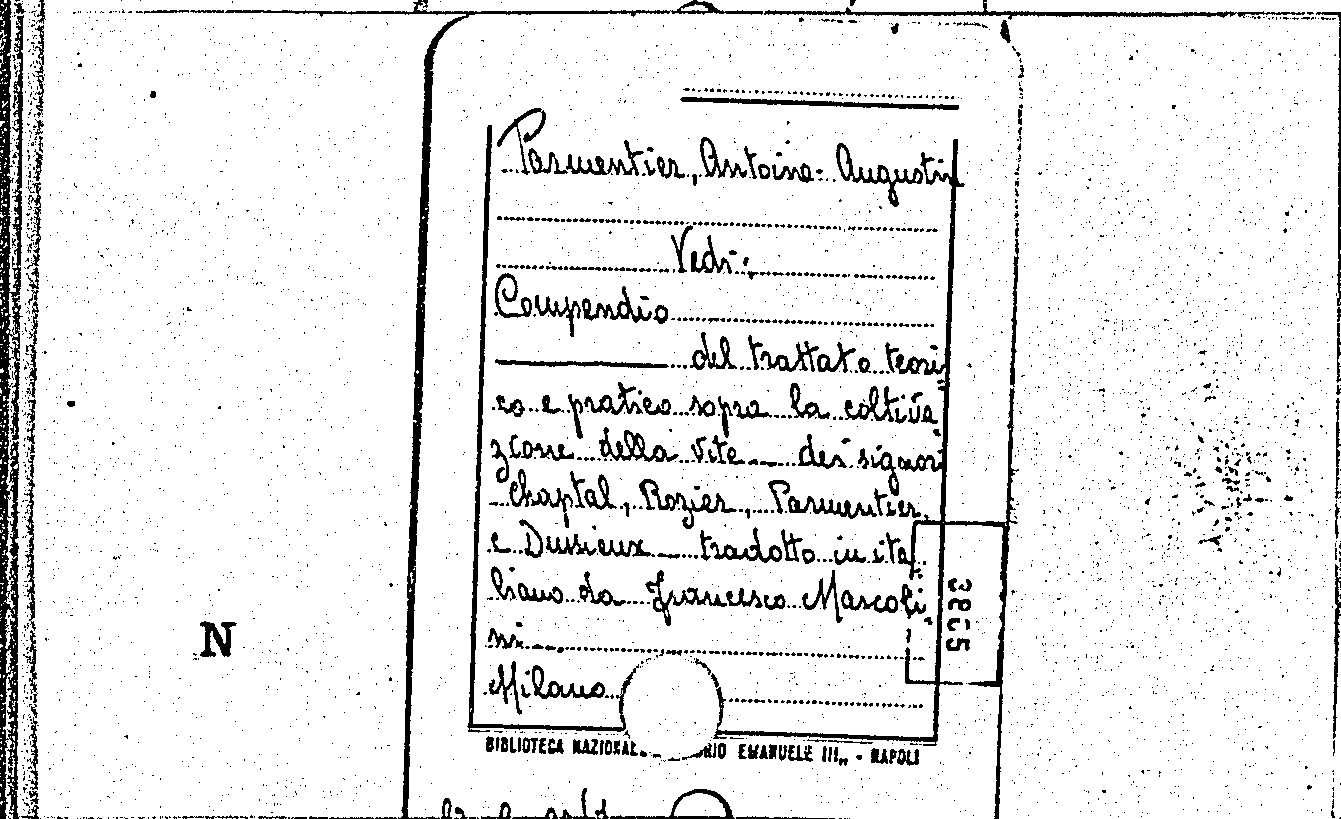 Parmentier, Antoine-Augustin
Vedi:
Compendio
del trattato teori
co e pratico sopra la coltiva
zione della vite dei signori
Chaptal, Rozier, Parmentier
e Dussieux tradotto in ita
liano da Francesco Mascoli
ni
Milano
N
BIBLIOTECA NAZIONALE EMANUELE III„ - NAPOLI